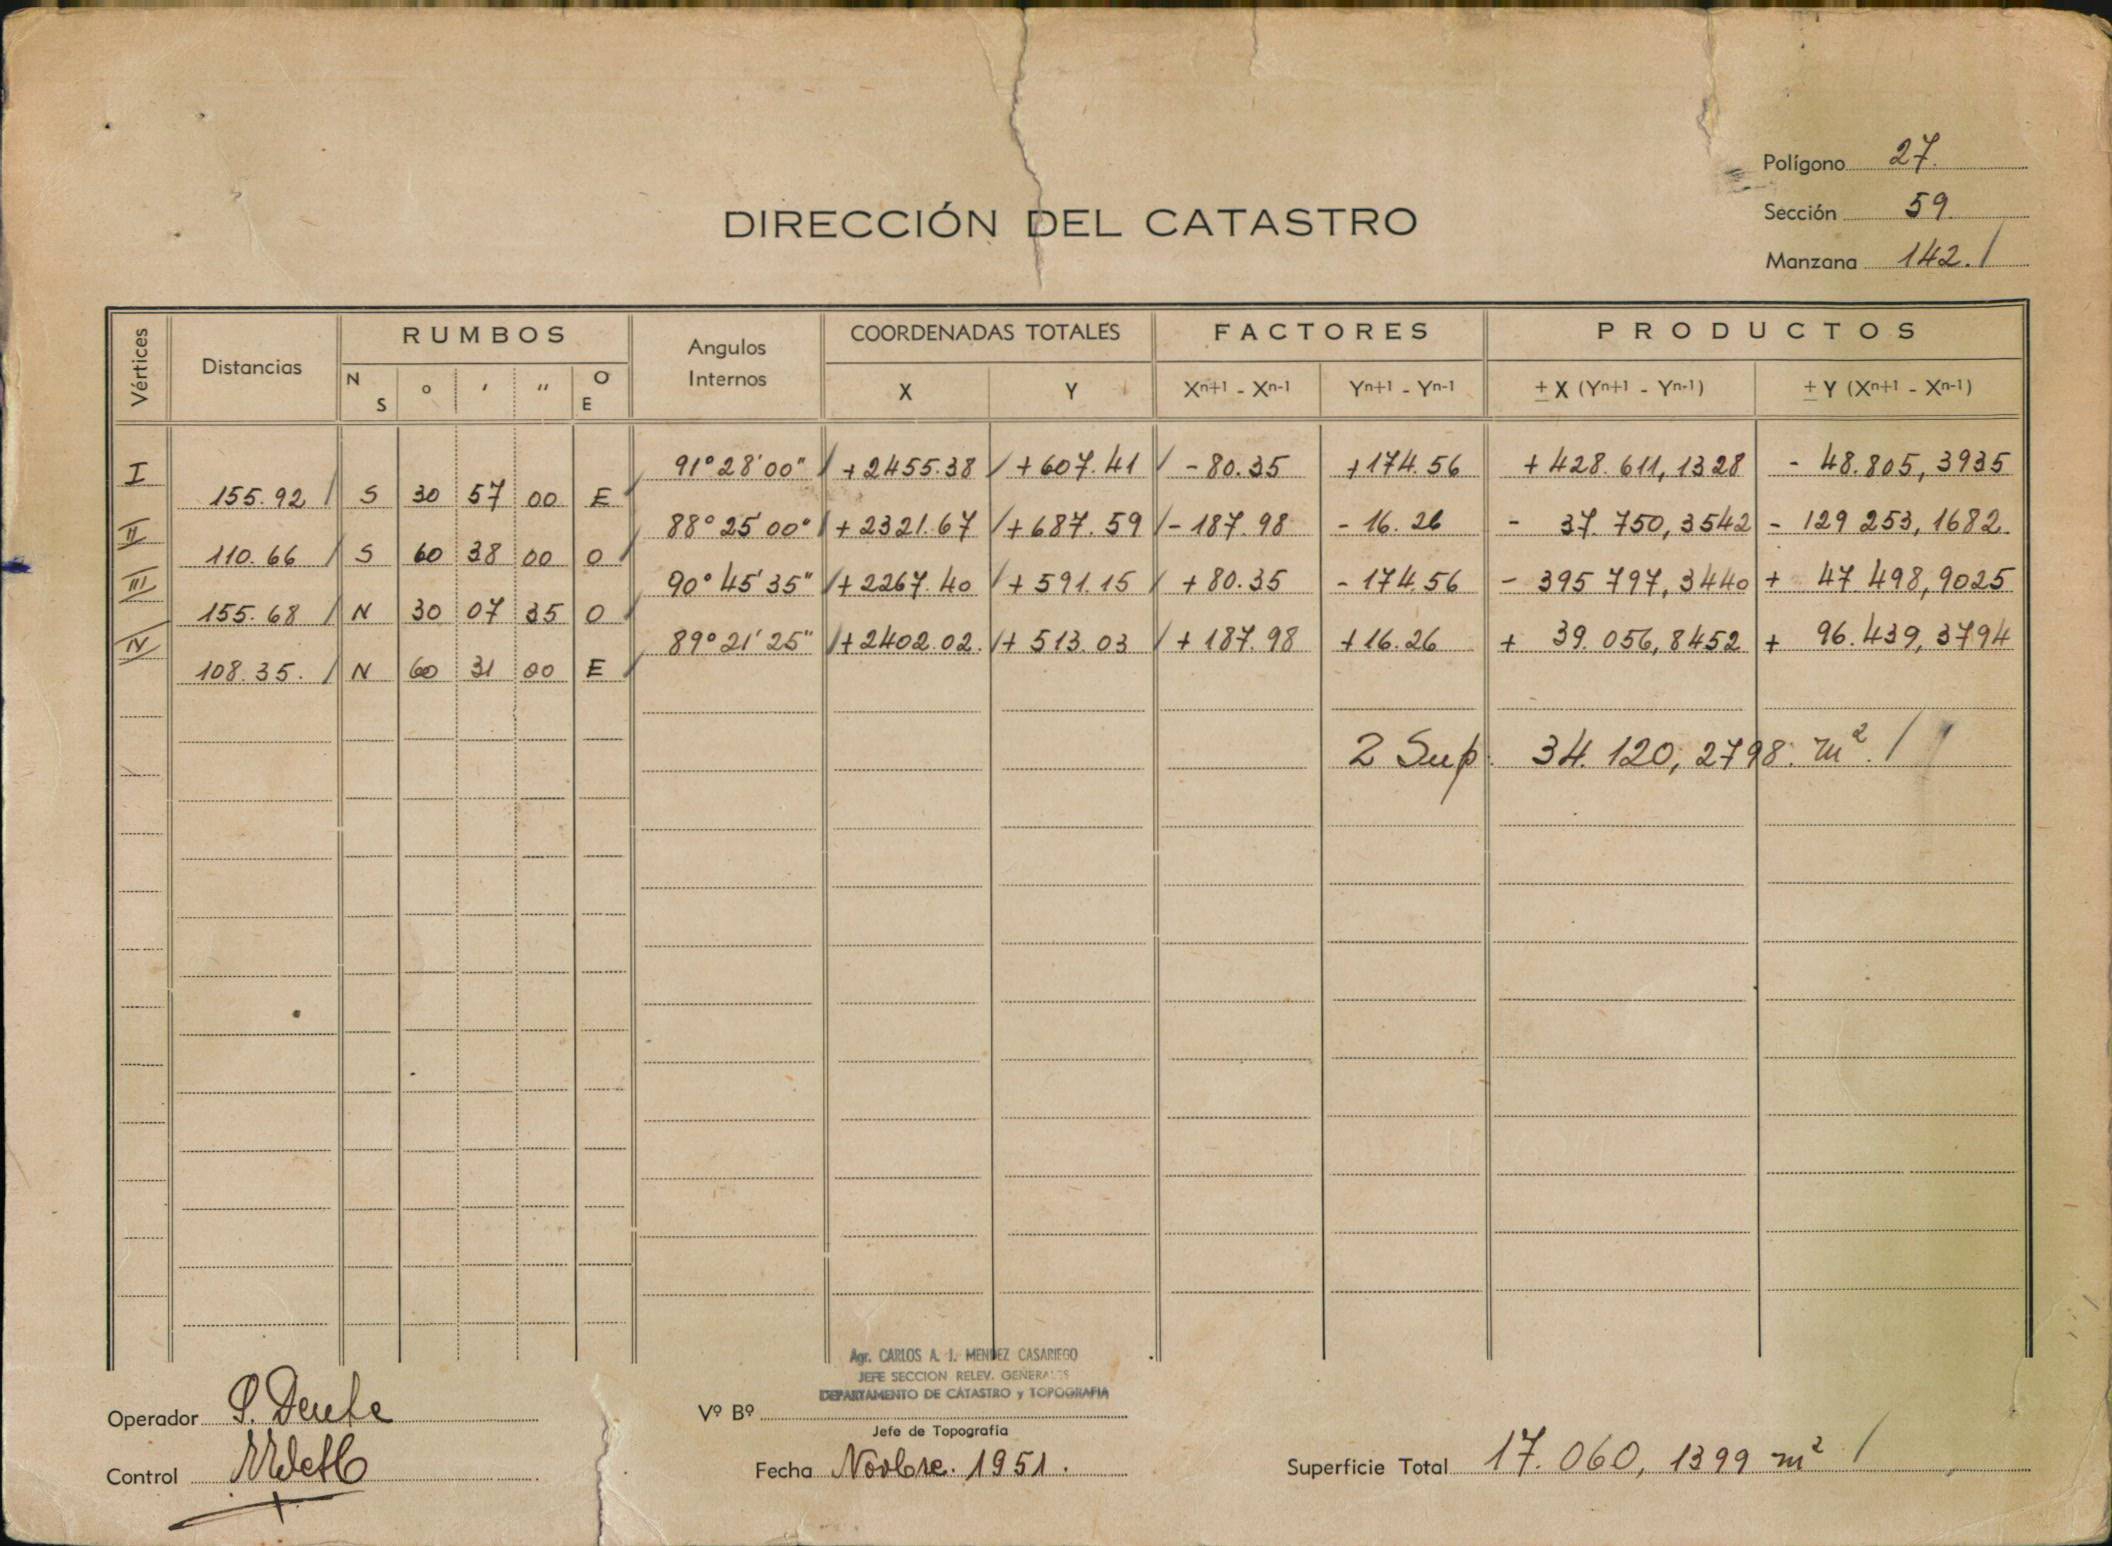 Polígono 27.
Sección 59.
Manzana 142. /
DIRECCIÓN DEL CATASTRO
Vértices Distancias RUMBOS Angulos Internos COORDENADAS TOTALES FACTORES PRODUCTOS
N S ° ' " O E X Y Xn+1 - Xn-1 Yn+1 - Yn-1 ± X (Yn+1 - Yn-1) ± Y (Xn+1 - Xn-1)
I 91° 28' 00" / + 2455.38 / + 607.41 / - 80.35 + 174.56 + 428.611,1328 - 48.805,3935
155.92 / S 30 57 00 E /
II 88° 25' 00" / + 2321.67 / + 687.59 / - 187.98 - 16.26 - 37.750,3542 - 129 253,1682.
110.66 / S 60 38 00 O /
III 90° 45' 35" / + 2267.40 / + 591.15 / + 80.35 - 174.56 - 395 797,3440 + 47 498,9025
155.68 / N 30 07 35 O /
IV 89° 21' 25" / + 2402.02. / + 513.03 / + 187.98 + 16.26 + 39.056,8452 + 96.439,3794
108.35. / N 60 31 00 E /
2 Sup. 34.120,2798. m². /
Agr. CARLOS A. J. MENDEZ CASARIEGO
JEFE SECCION RELEV. GENERALES
DEPARTAMENTO DE CATASTRO y TOPOGRAFIA
Operador
Vº Bº
Jefe de Topografía
Control
Fecha Novbre. 1951.
Superficie Total 17.060,1399 m² /